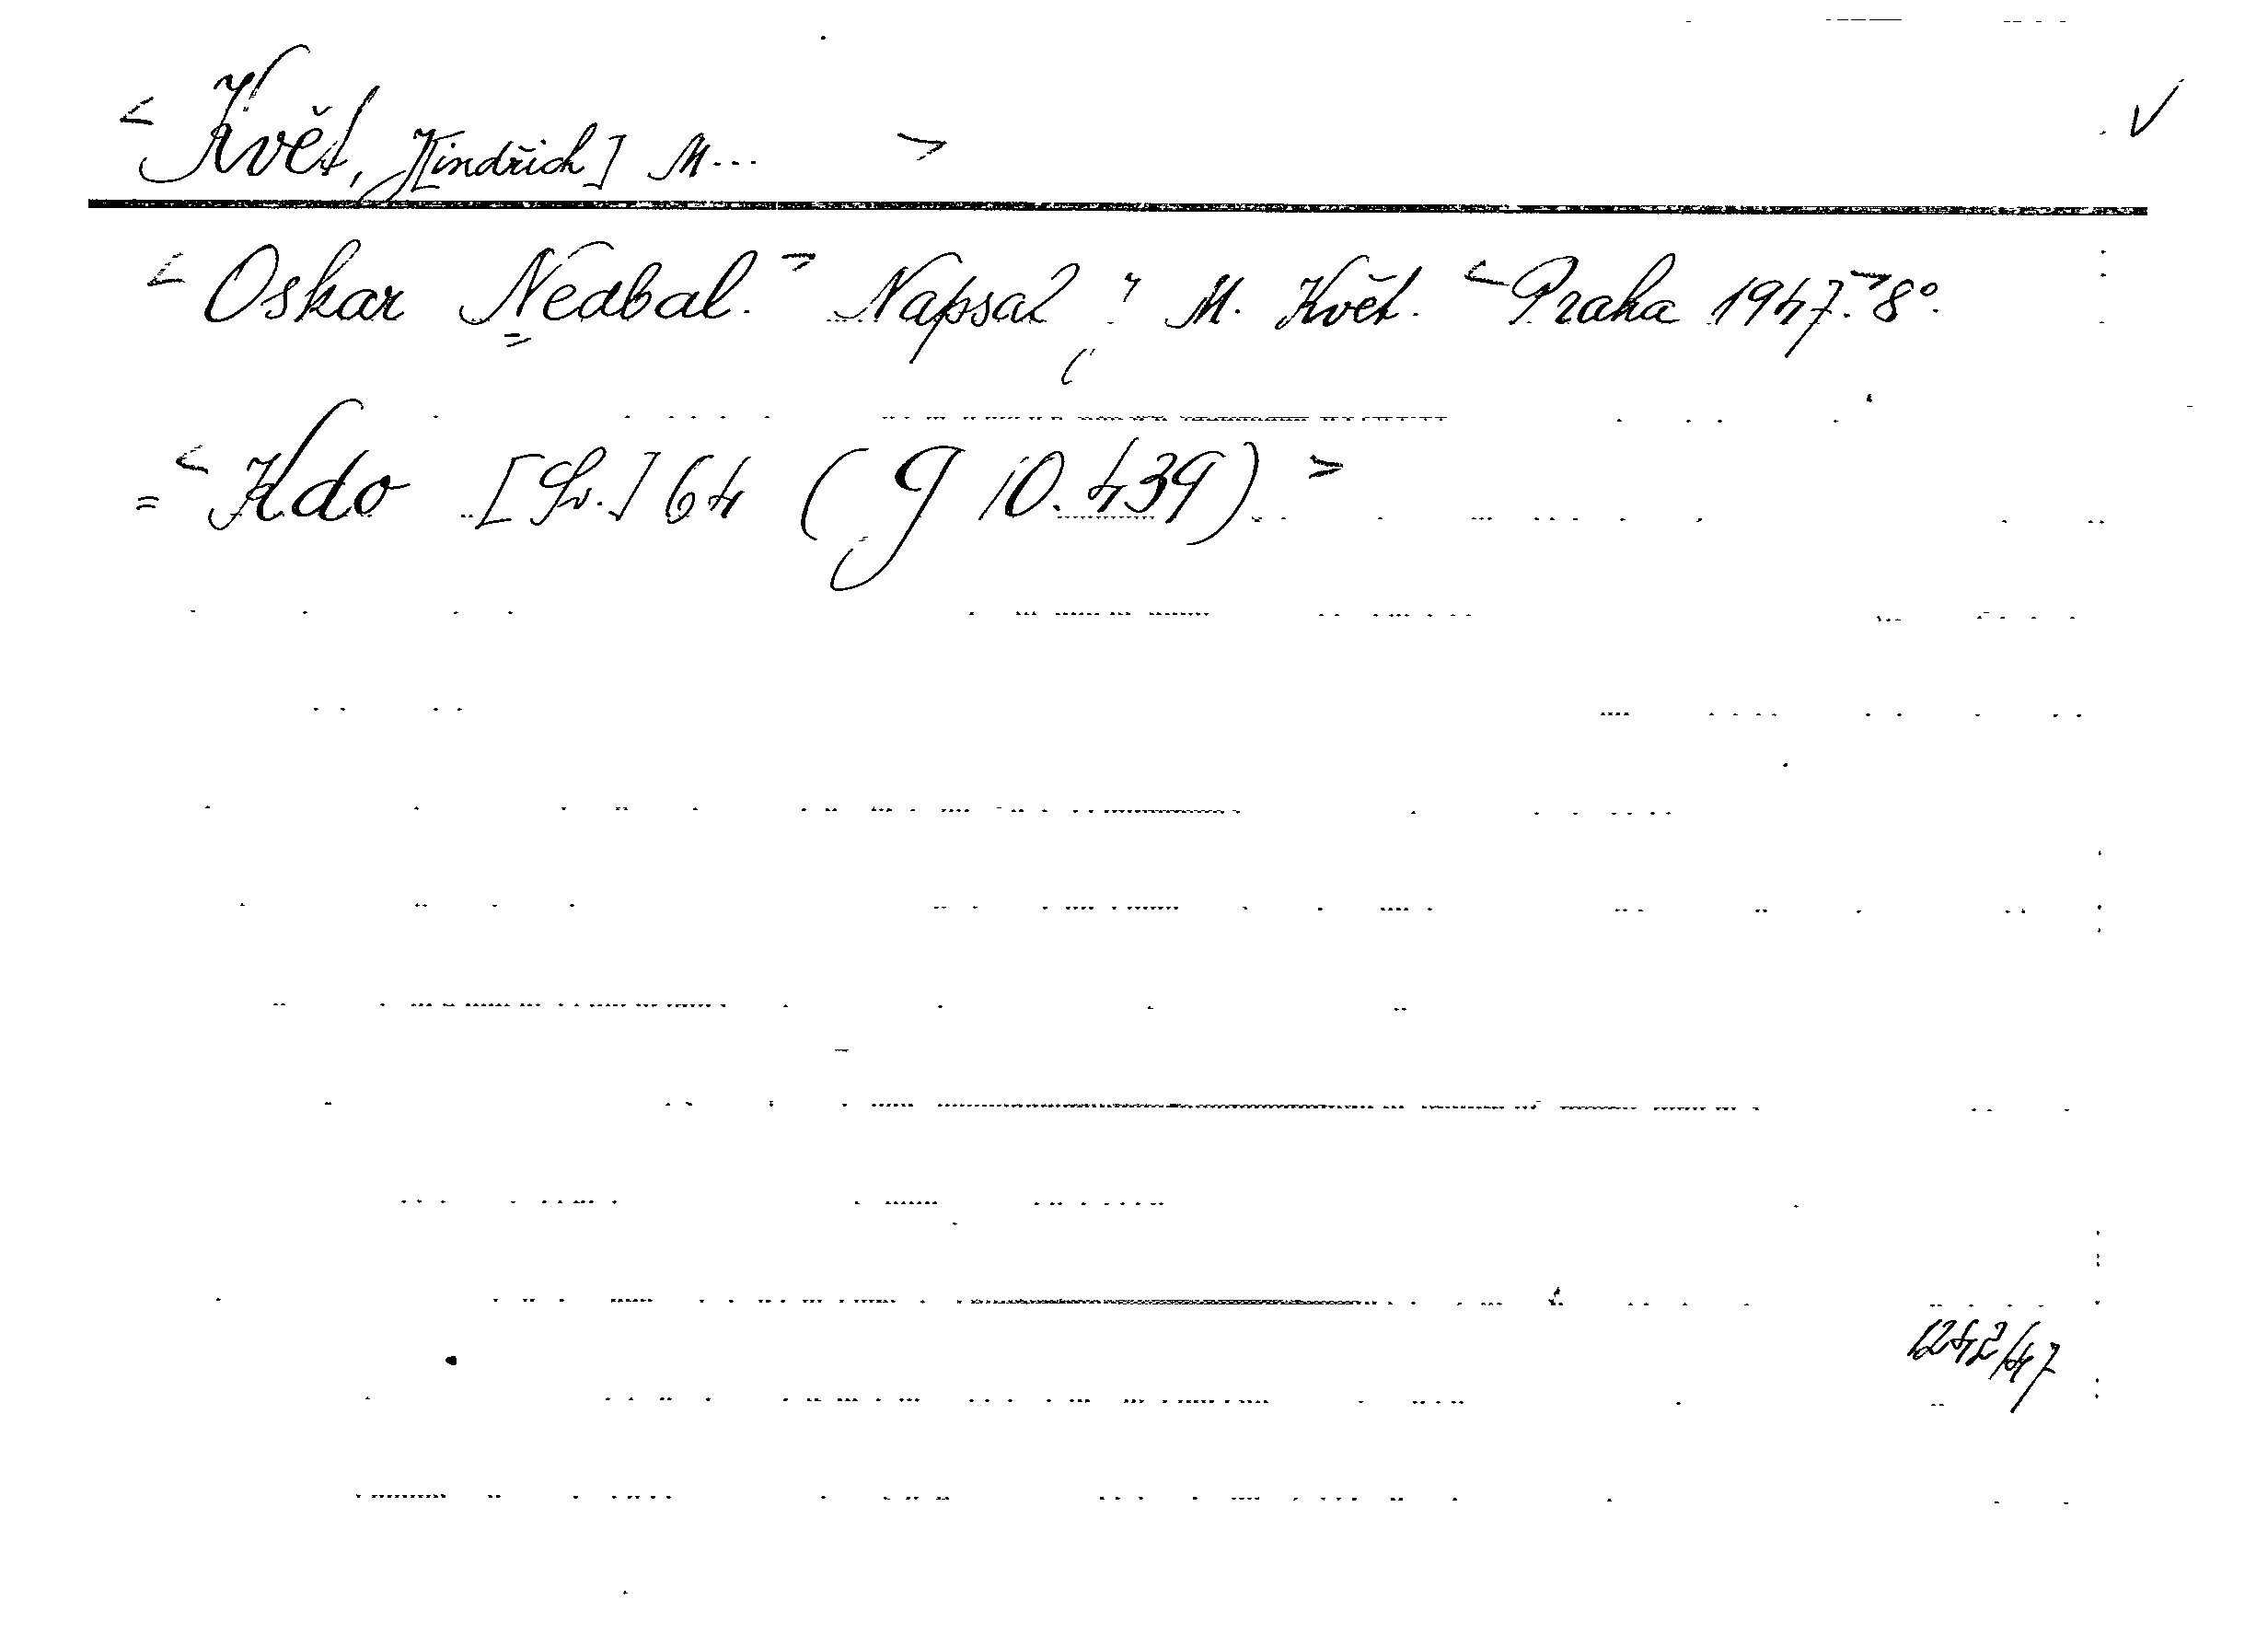 < Květ, J[indřich] M... >
< Oskar Nedbal. > Napsal J. M. Květ. < Praha 1947. > 8°.
= < Kdo [Sv.] 64 (g 10.439) >
1242/47